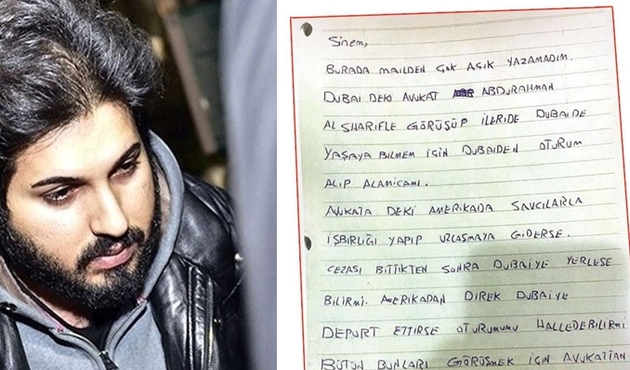 Sinem,
BURADA MAİLDEN ÇOK AÇIK YAZAMADIM.
DUBAİ DEKİ AVUKAT ABDURAHMAN
AL SHARIFLE GÖRÜŞÜP İLERİDE DUBAİDE
YAŞAYA BİLMEM İÇİN DUBAİDEN OTURUM
ALIP ALAMICAMI.
AVUKATA DEKİ AMERİKADA SAVCILARLA
İŞBİRLİĞİ YAPIP UZLAŞMAYA GİDERSE.
CEZASI BİTTİKTEN SONRA DUBAİYE YERLEŞE
BİLİRMİ. AMERİKADAN DİREK DUBAİYE
DEPORT ETTİRSE OTURUMUMU HALLEDEBİLİRMİ
BÜTÜN BUNLARI GÖRÜŞMEK İÇİN AVUKATTAN